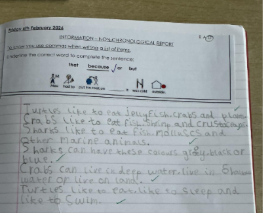 6th February 2024
INFORMATION - NON-CHRONOLOGICAL REPORT
To use commas when writing a list of items.
the correct word to complete the sentence.
that because or but
Turtles like to eat Jellyfish, crabs and plants.
Crabs like to eat Fish, Shrimp and crustaceans
Sharks like to eat Fish, Molluscs and
other Marine animals.
Sharks can have these colours grey, black or
blue.
Crabs can live in deep water, live in
water or live on land.
Turtles like to eat, like to sleep and
like to Swim.